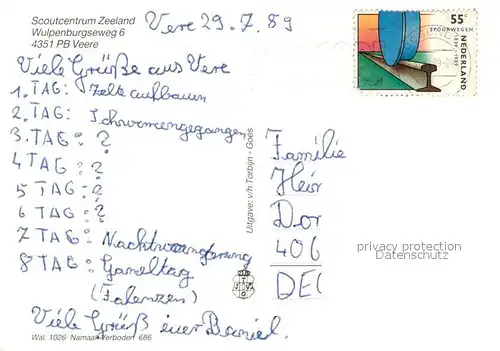 Scoutcentrum Zeeland
Wulpenburgseweg 6
4351 PB Veere
Vere 29.7.89
Viele Grüße aus Vere
1. TAG: Zelte aufbauen
2. TAG: Schwimmengegangen
3. TAG: ?
4 TAG: ?
5 TAG: ?
6 TAG: ?
7 TAG: Nachtwanderung
8 TAG: Gameltag
(Faulenzen)
Viele Grüß euer Daniel.
Wal. 1026 Namaak Verboden 686
Uitgave: v/h Torbijn - Goes
55c
SPOORWEGEN
1839-1989
NEDERLAND
Familie
Heir
Dor
406
DE
privacy protection
Datenschutz